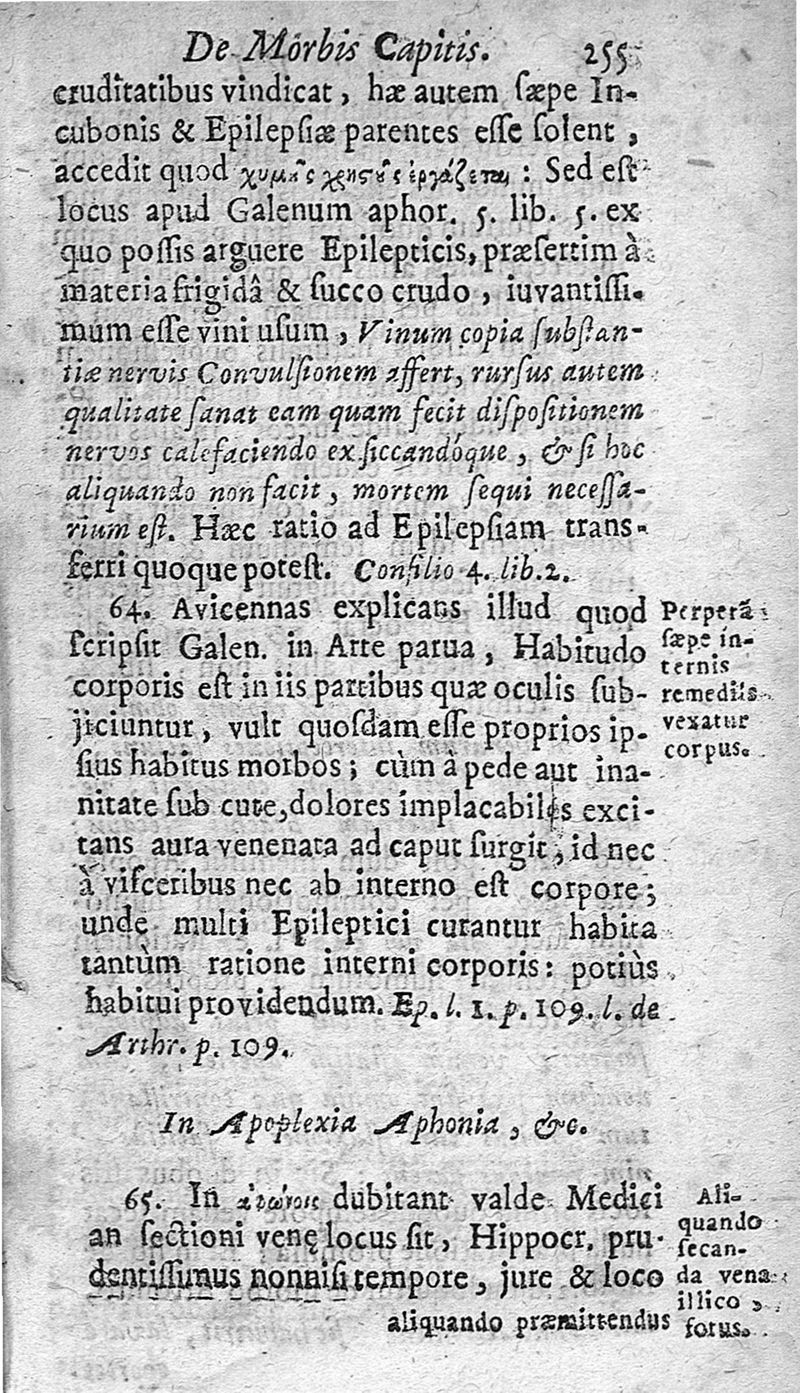 De Morbis Capitis. 255
cruditatibus vindicat, hæ autem ſæpe In-
cubonis & Epilepſiæ parentes eſſe ſolent,
accedit quod χυμοὺς χρηστοὺς ἐργάζεται : Sed eſt
locus apud Galenum aphor. 5. lib. 5. ex
quo poſſis arguere Epilepticis, præſertim à
materia frigidâ & ſucco crudo, iuvantiſſi-
mum eſſe vini uſum, Vinum copia ſubſtan-
tiæ nervis Convulſionem affert, rurſus autem
qualitate ſanat eam quam fecit diſpoſitionem
nervos calefaciendo exſiccandóque, & ſi hoc
aliquando non facit, mortem ſequi neceſſa-
rium eſt. Hæc ratio ad Epilepſiam trans-
ferri quoque poteſt. Conſilio 4. lib. 2.
64. Avicennas explicans illud quod
ſcripſit Galen. in Arte parua, Habitudo
corporis eſt in iis partibus quæ oculis ſub-
jiciuntur, vult quoſdam eſſe proprios ip-
ſius habitus morbos; cùm à pede aut ina-
nitate ſub cute, dolores implacabiles exci-
tans aura venenata ad caput ſurgit, id nec
à viſceribus nec ab interno eſt corpore;
unde multi Epileptici curantur habita
tantùm ratione interni corporis: potiùs
habitui providendum. Ep. l. 1. p. 109. l. de
Arthr. p. 109.
Perperā
ſæpe in-
ternis
remediis
vexatur
corpus.
In Apoplexia Aphonia, &c.
65. In ἀφώνοις dubitant valde Medici
an ſectioni venę locus ſit, Hippocr. pru-
dentiſſimus nonniſi tempore, jure & loco
aliquando præmittendus
Ali-
quando
ſecan-
da vena
illico,
fotus.